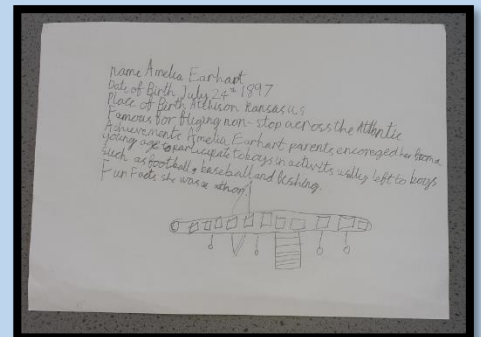 name Amelia Earhart
Date of Birth July 24th 1897
Place of Birth Atchison Kansas us
Famous for fleging non-stop across the Athntic
Achievements Amelia Earhart parents encoreged her from a
young age to participate to boys in activits left to boys
such as football, baseball and fishing.
Fun Facts she was a